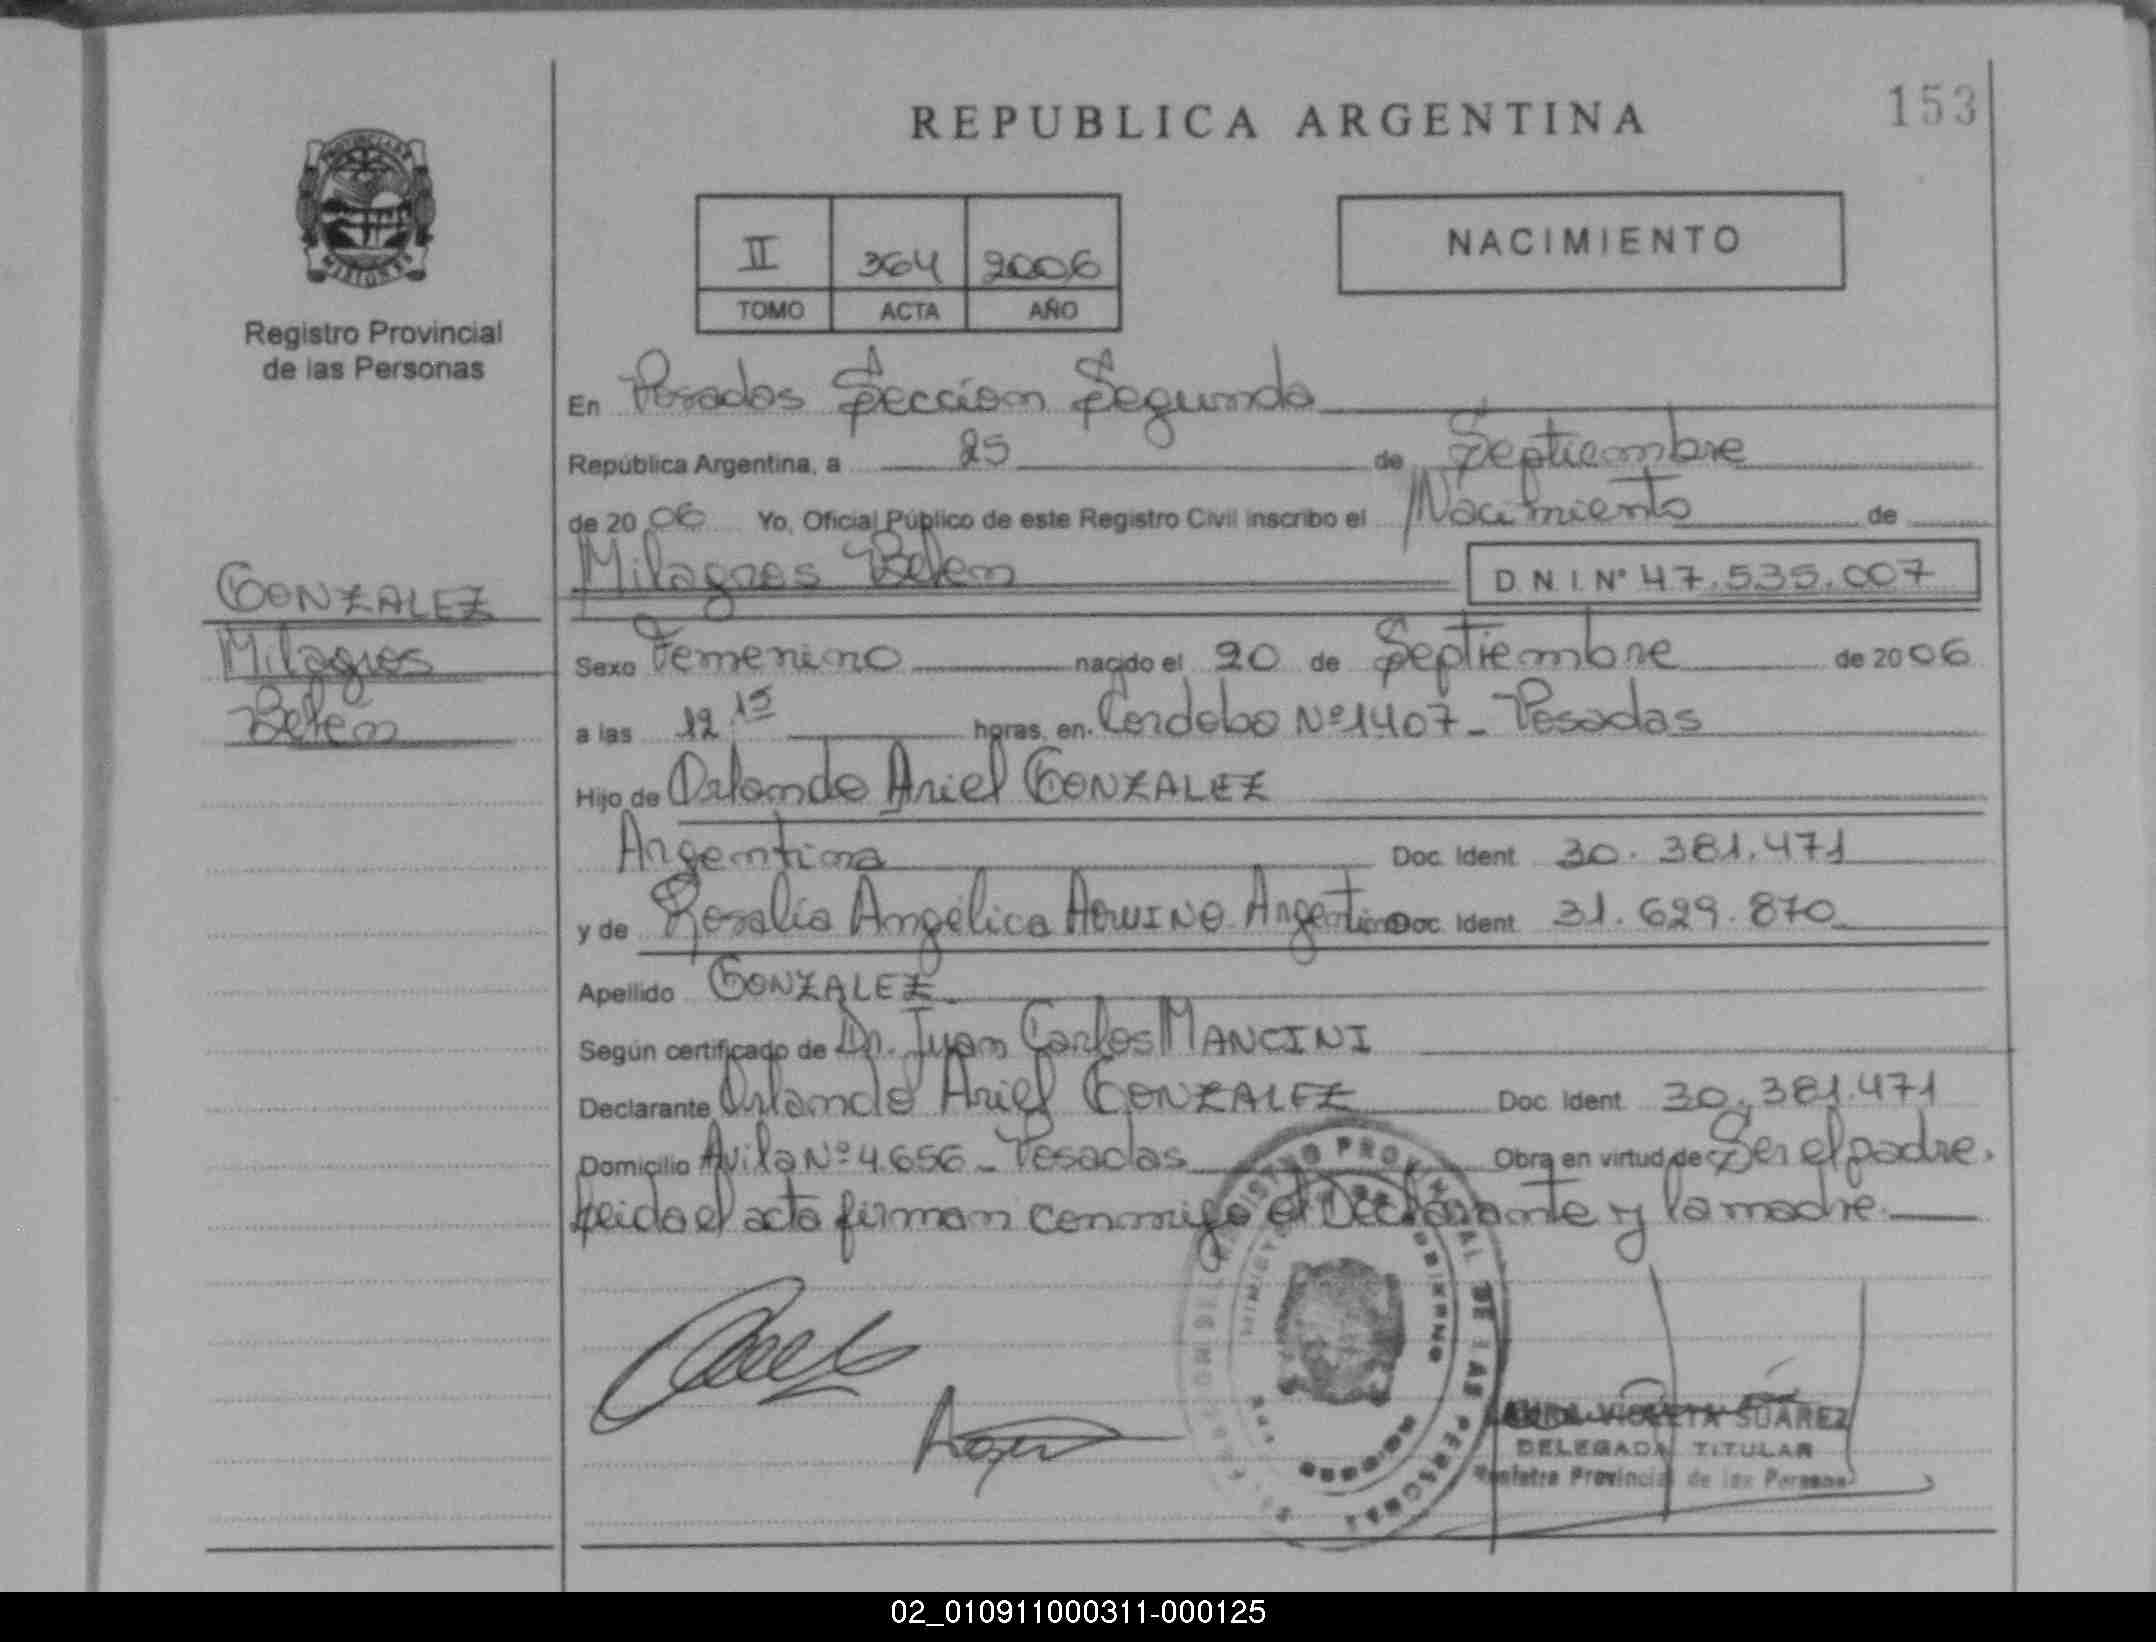 REPUBLICA ARGENTINA
153
PROVINCIA DE
MISIONES
Registro Provincial
de las Personas
II 364 2006
TOMO ACTA AÑO
NACIMIENTO
En Posadas Sección Segunda
República Argentina, a 25 de Septiembre
de 20 06 Yo, Oficial Público de este Registro Civil inscribo el Nacimiento de
Milagros Belem
D.N.I. N° 47.535.007
GONZALEZ
Milagros
Belem
Sexo Femenino nacido el 20 de Septiembre de 20 06
a las 12.15 horas, en Cordoba Nº 1407 - Posadas
Hijo de Orlando Ariel GONZALEZ
Argentina Doc. Ident. 30.381.471
y de Rosalía Angélica AQUINO Argentina Doc. Ident. 31.629.870
Apellido GONZALEZ
Según certificado de Dr. Juan Carlos MANCINI
Declarante Orlando Ariel GONZALEZ Doc. Ident. 30.381.471
Domicilio Avila Nº 4.656 - Posadas Obra en virtud de Ser el padre.
Leida el acta firman conmigo el Declarante y la madre.
REGISTRO PROVINCIAL DE LAS PERSONAS
GOBIERNO
VIOLETA SUAREZ
DELEGADA TITULAR
Registro Provincial de las Personas
02_010911000311-000125